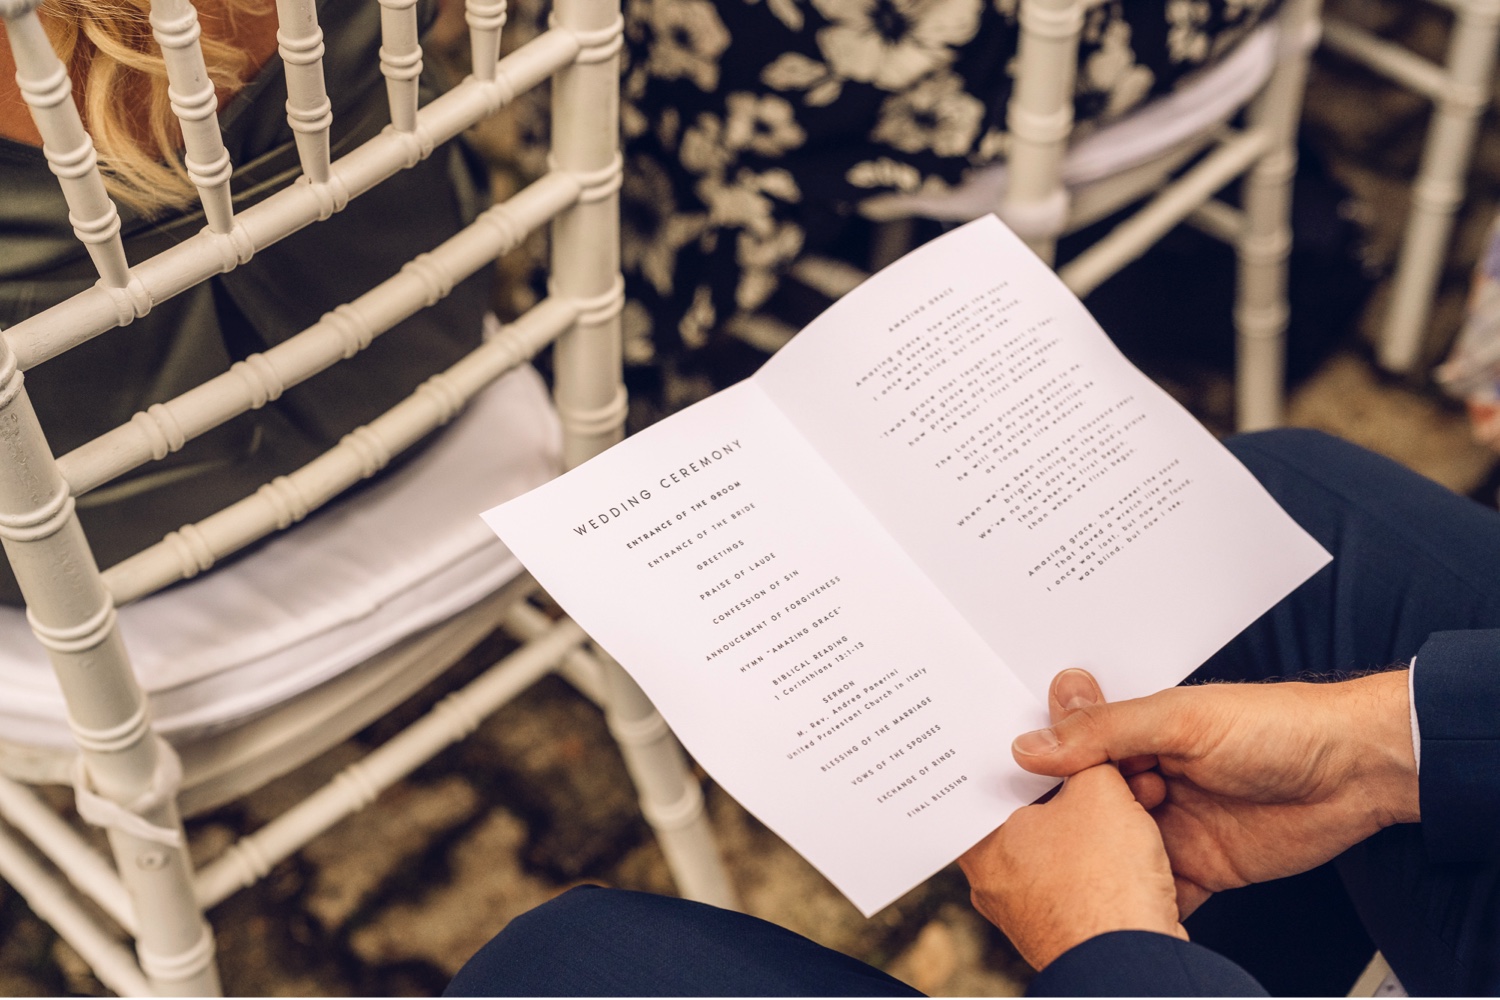 WEDDING CEREMONY
ENTRANCE OF THE GROOM
ENTRANCE OF THE BRIDE
GREETINGS
PRAISE OF LAUDE
CONFESSION OF SIN
ANNOUCEMENT OF FORGIVENESS
HYMN "AMAZING GRACE"
BIBLICAL READING
1 Corinthians 13:1-13
SERMON
M. Rev. Andrea Panerini
United Protestant Church in Italy
BLESSING OF THE MARRIAGE
VOWS OF THE SPOUSES
EXCHANGE OF RINGS
FINAL BLESSING
AMAZING GRACE
Amazing grace, how sweet the sound
That saved a wretch like me
I once was lost, but now am found,
was blind, but now I see.
'Twas grace that taught my heart to fear,
and grace my fears relieved;
how precious did that grace appear,
the hour I first believed!
The Lord has promised good to me,
his word my hope secures;
he will my shield and portion be
as long as life endures.
When we've been there ten thousand years
bright shining as the sun,
We've no less days to sing God's praise
than when we first begun,
than when we first begun.
Amazing grace, how sweet the sound
That saved a wretch like me
I once was lost, but now am found,
was blind, but now I see.